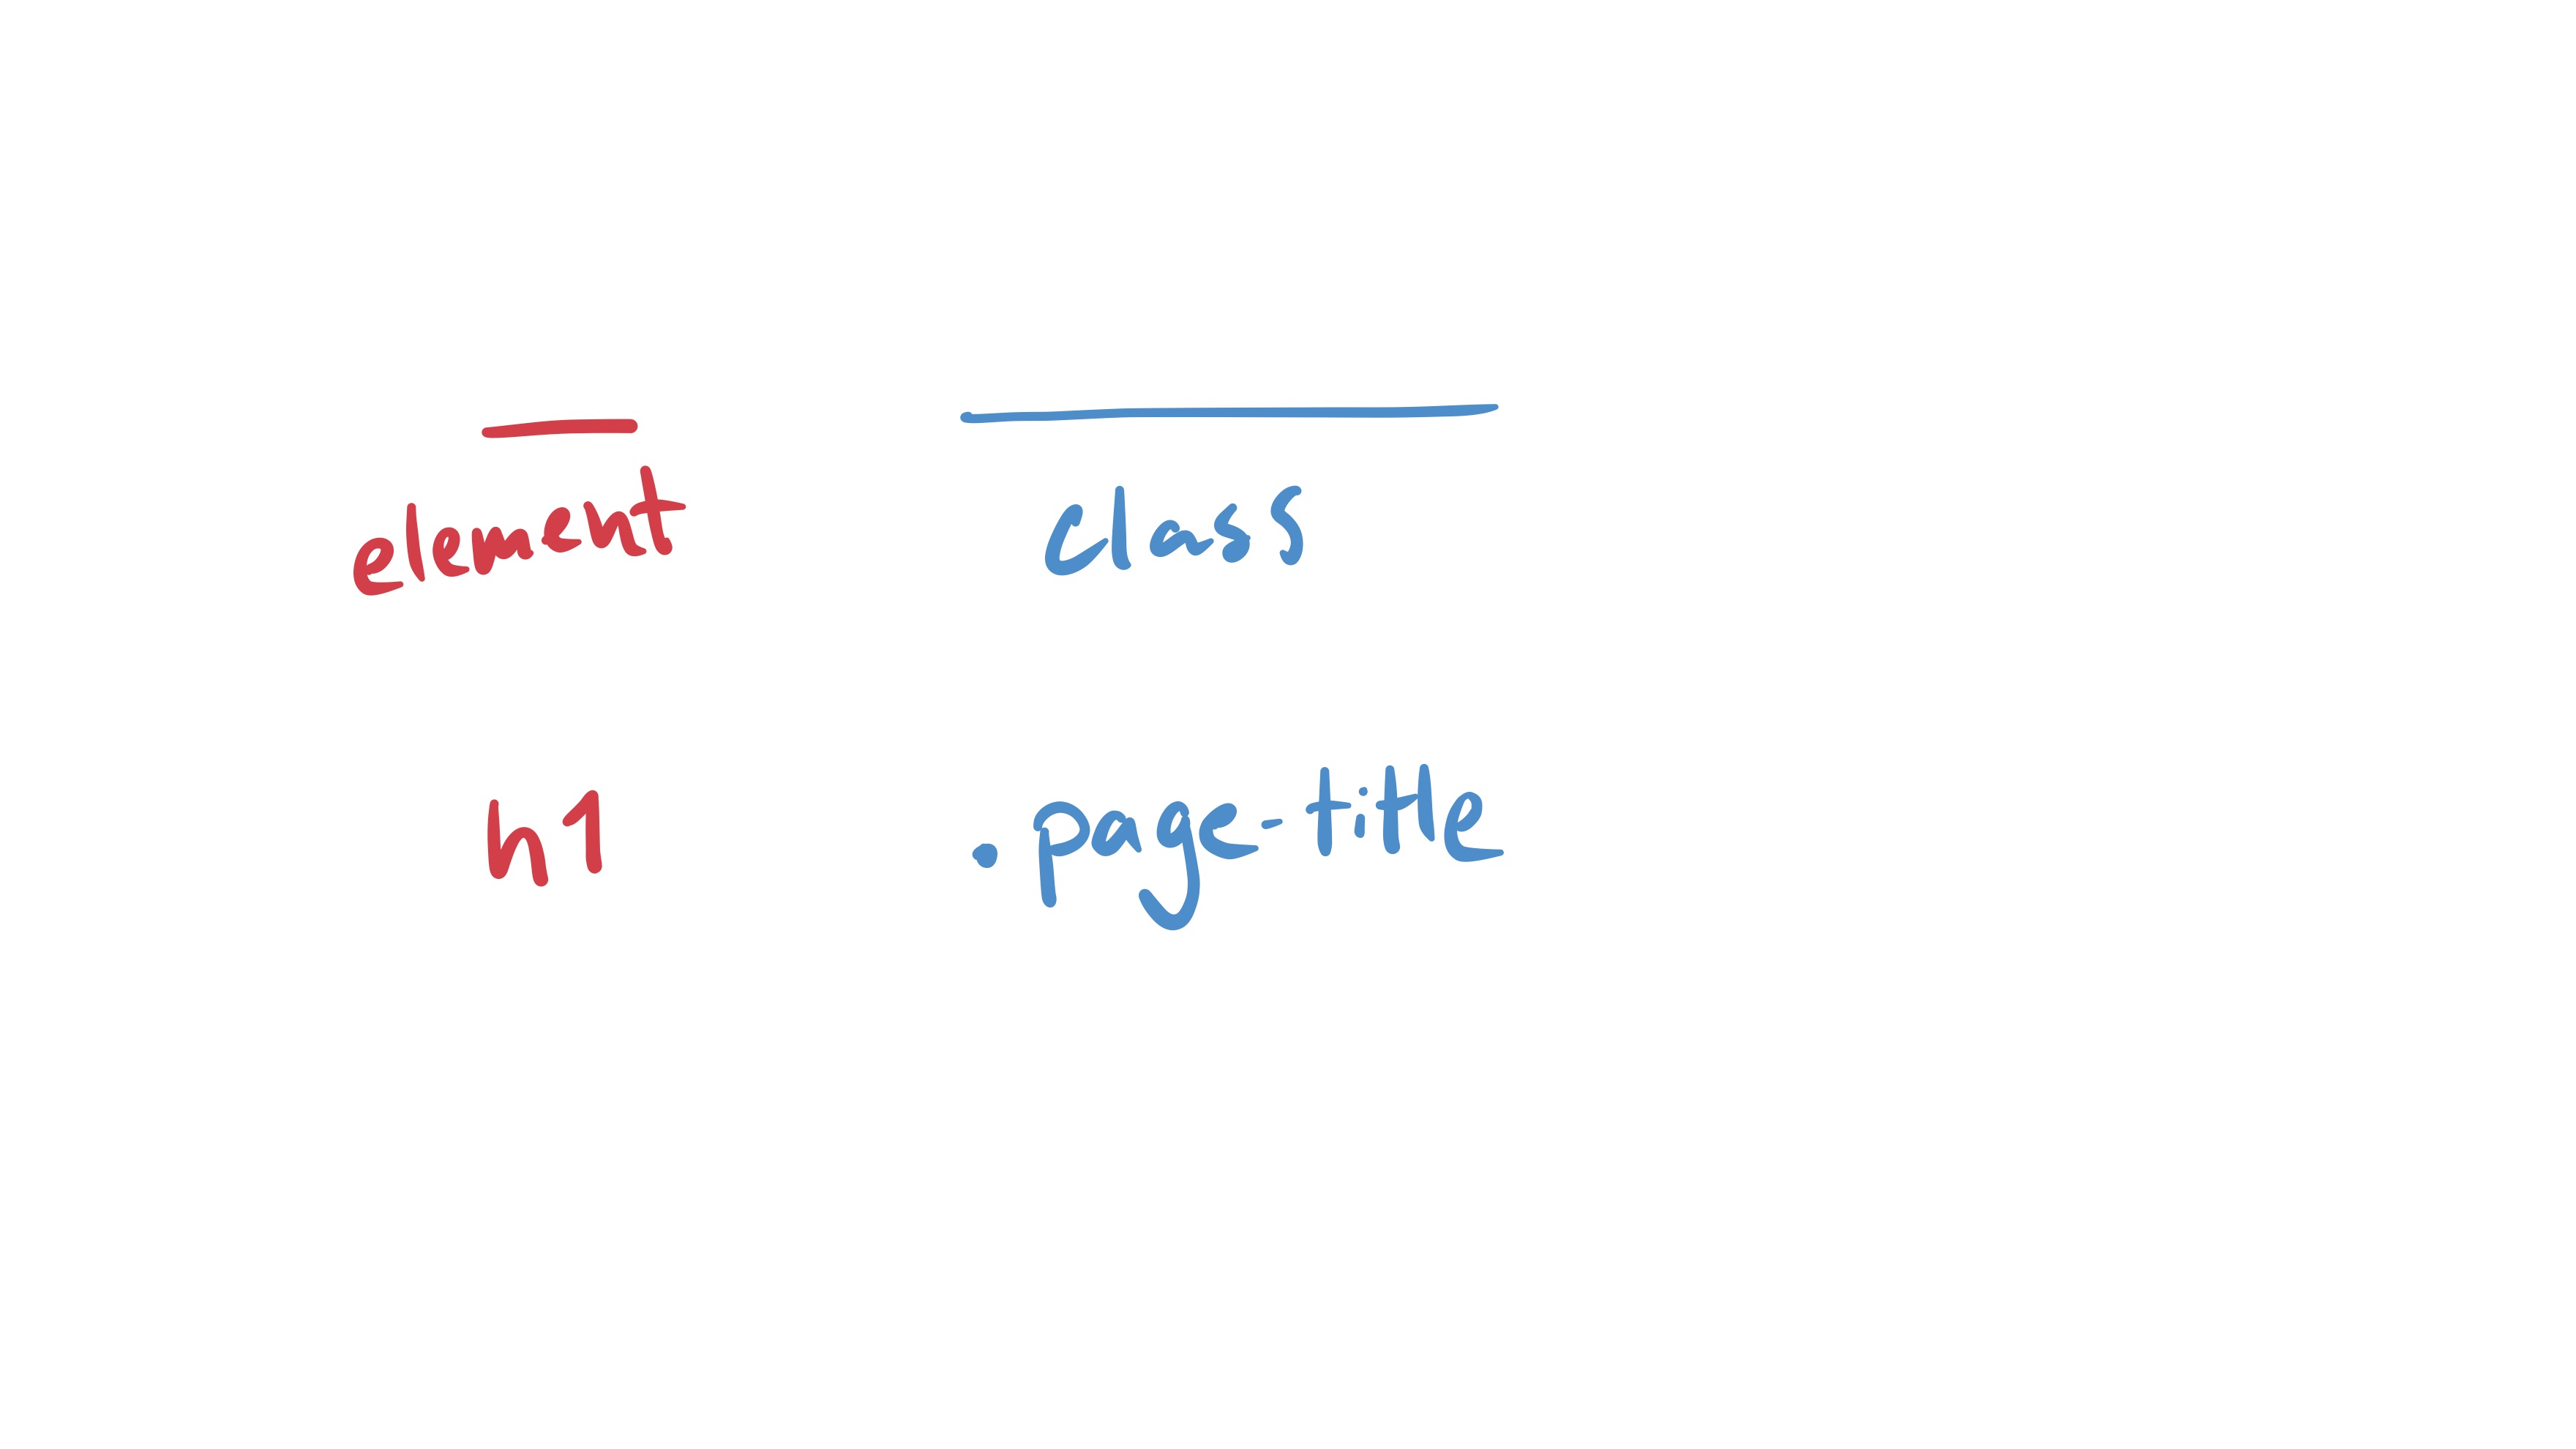 element class
h1 .page-title